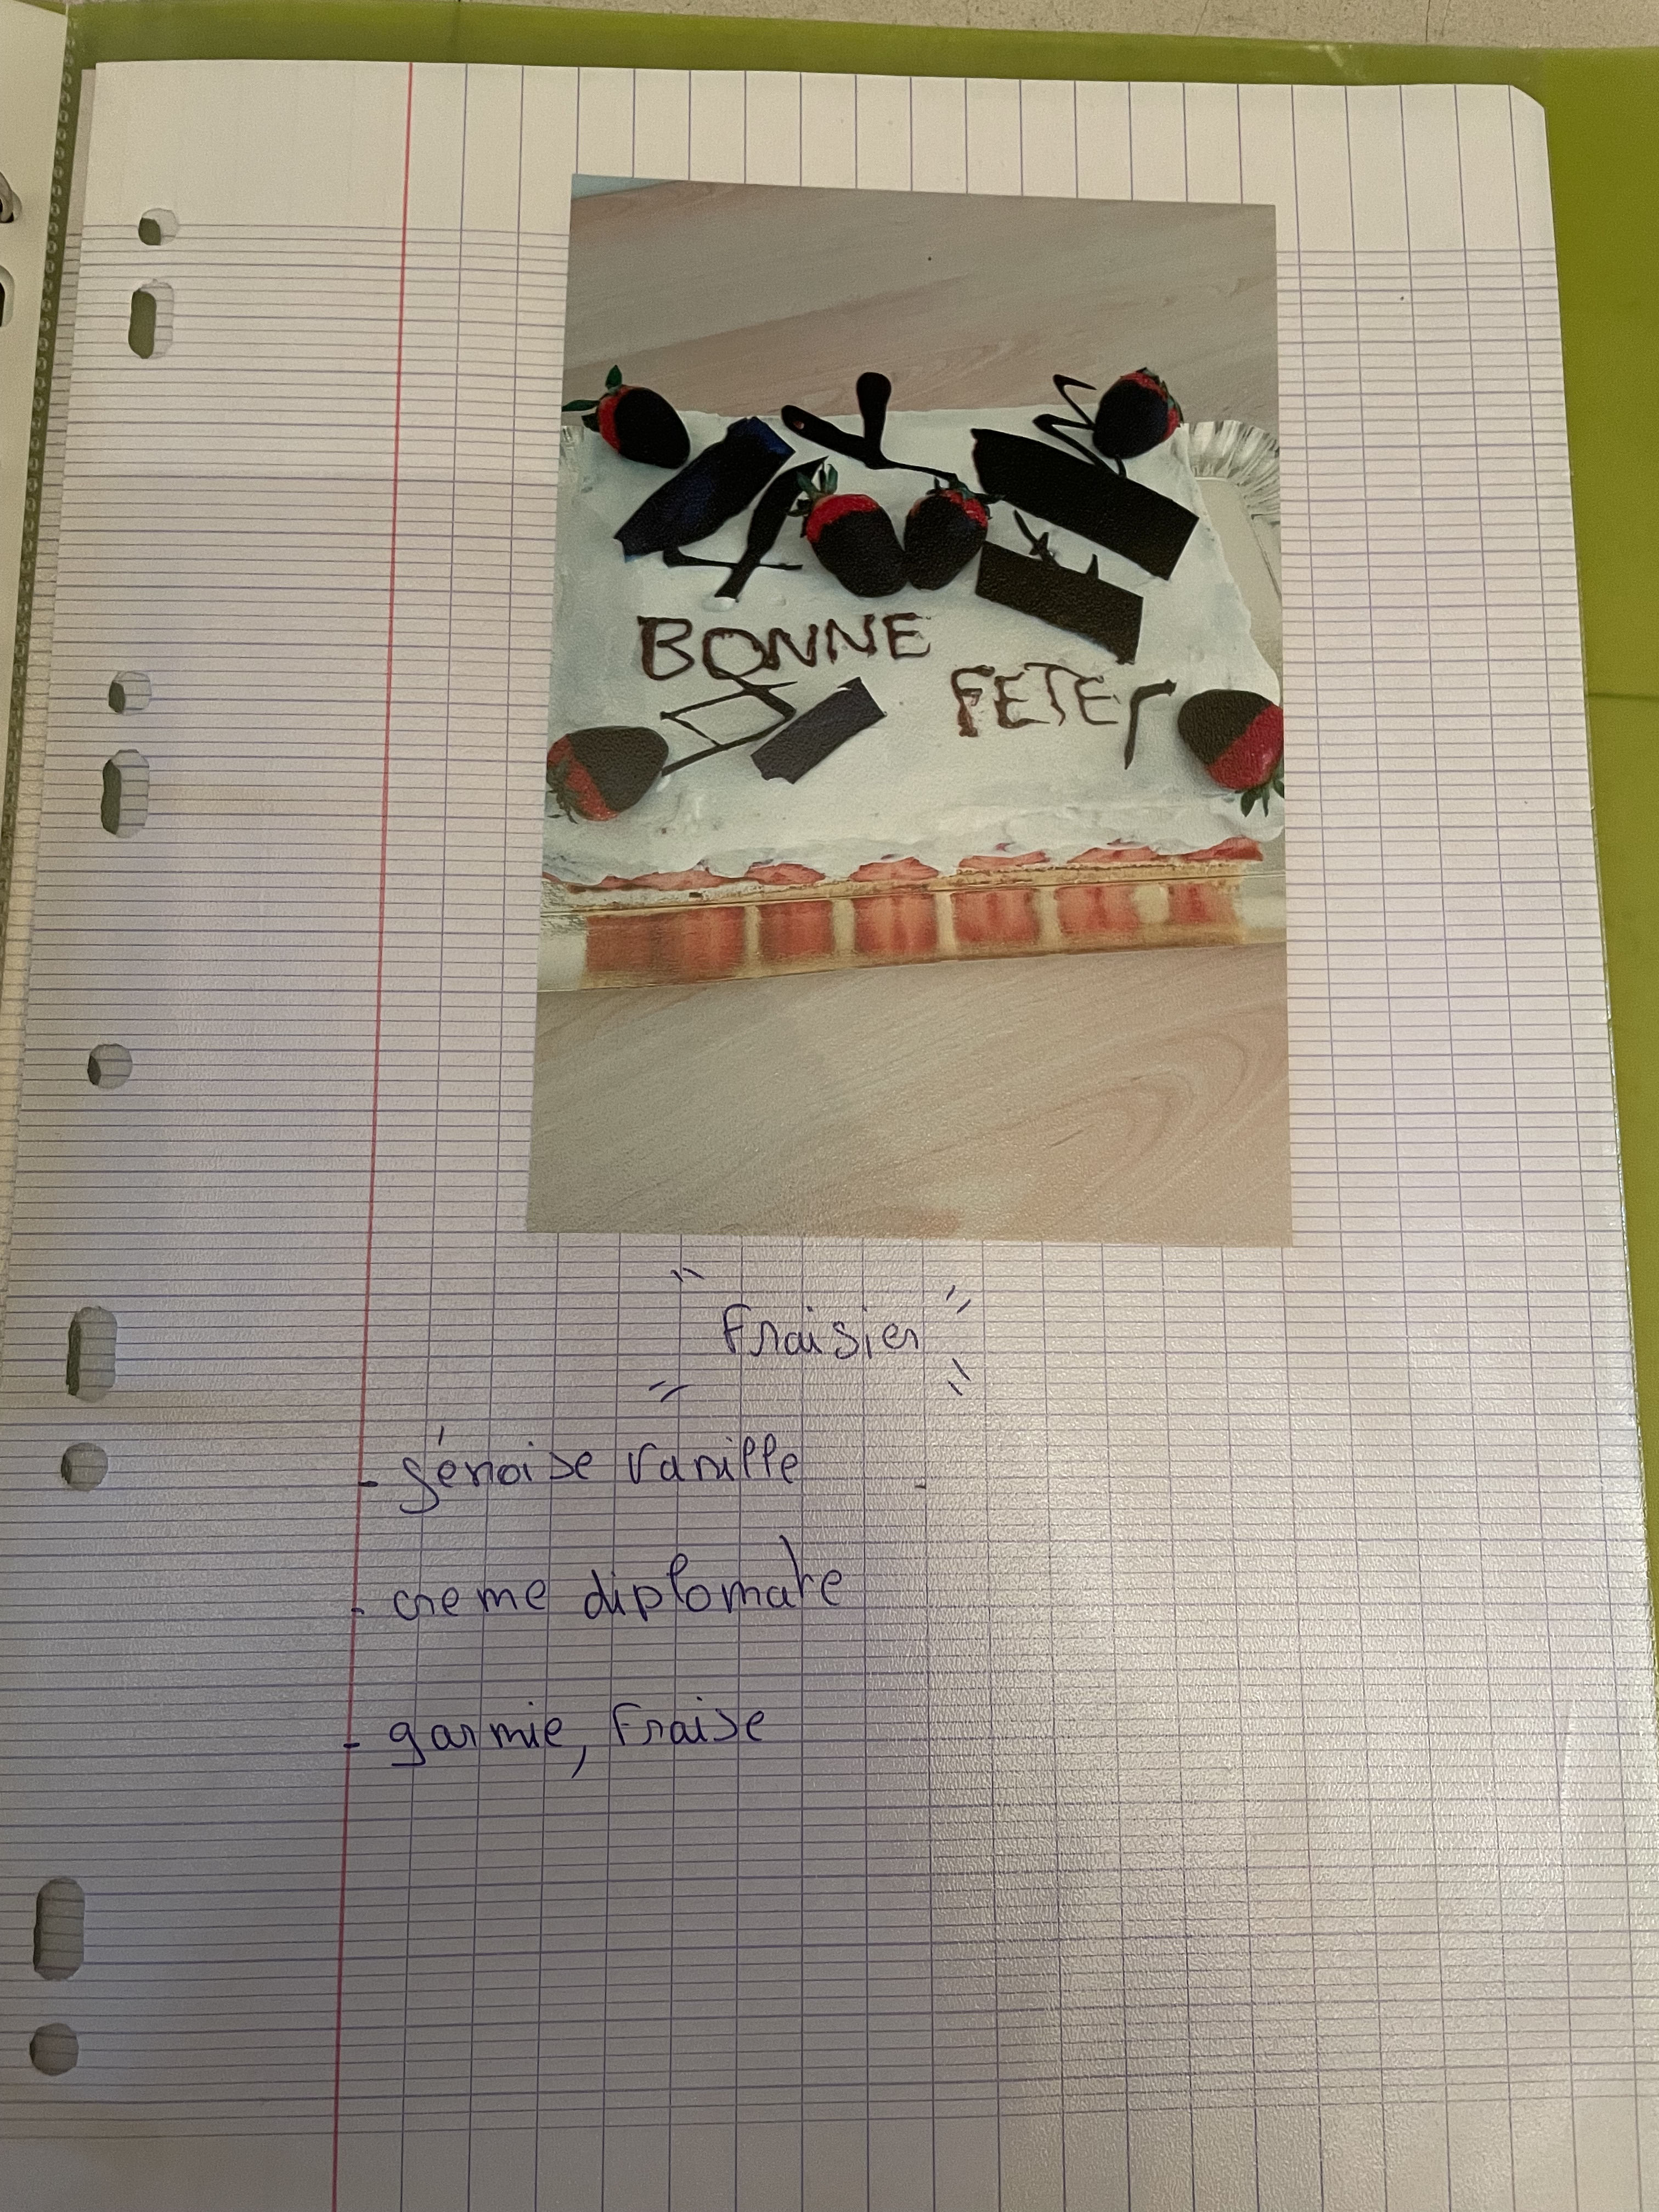 BONNE
FETE
Fraisier
- génoise vanille
- creme diplomate
- garnie, Fraise